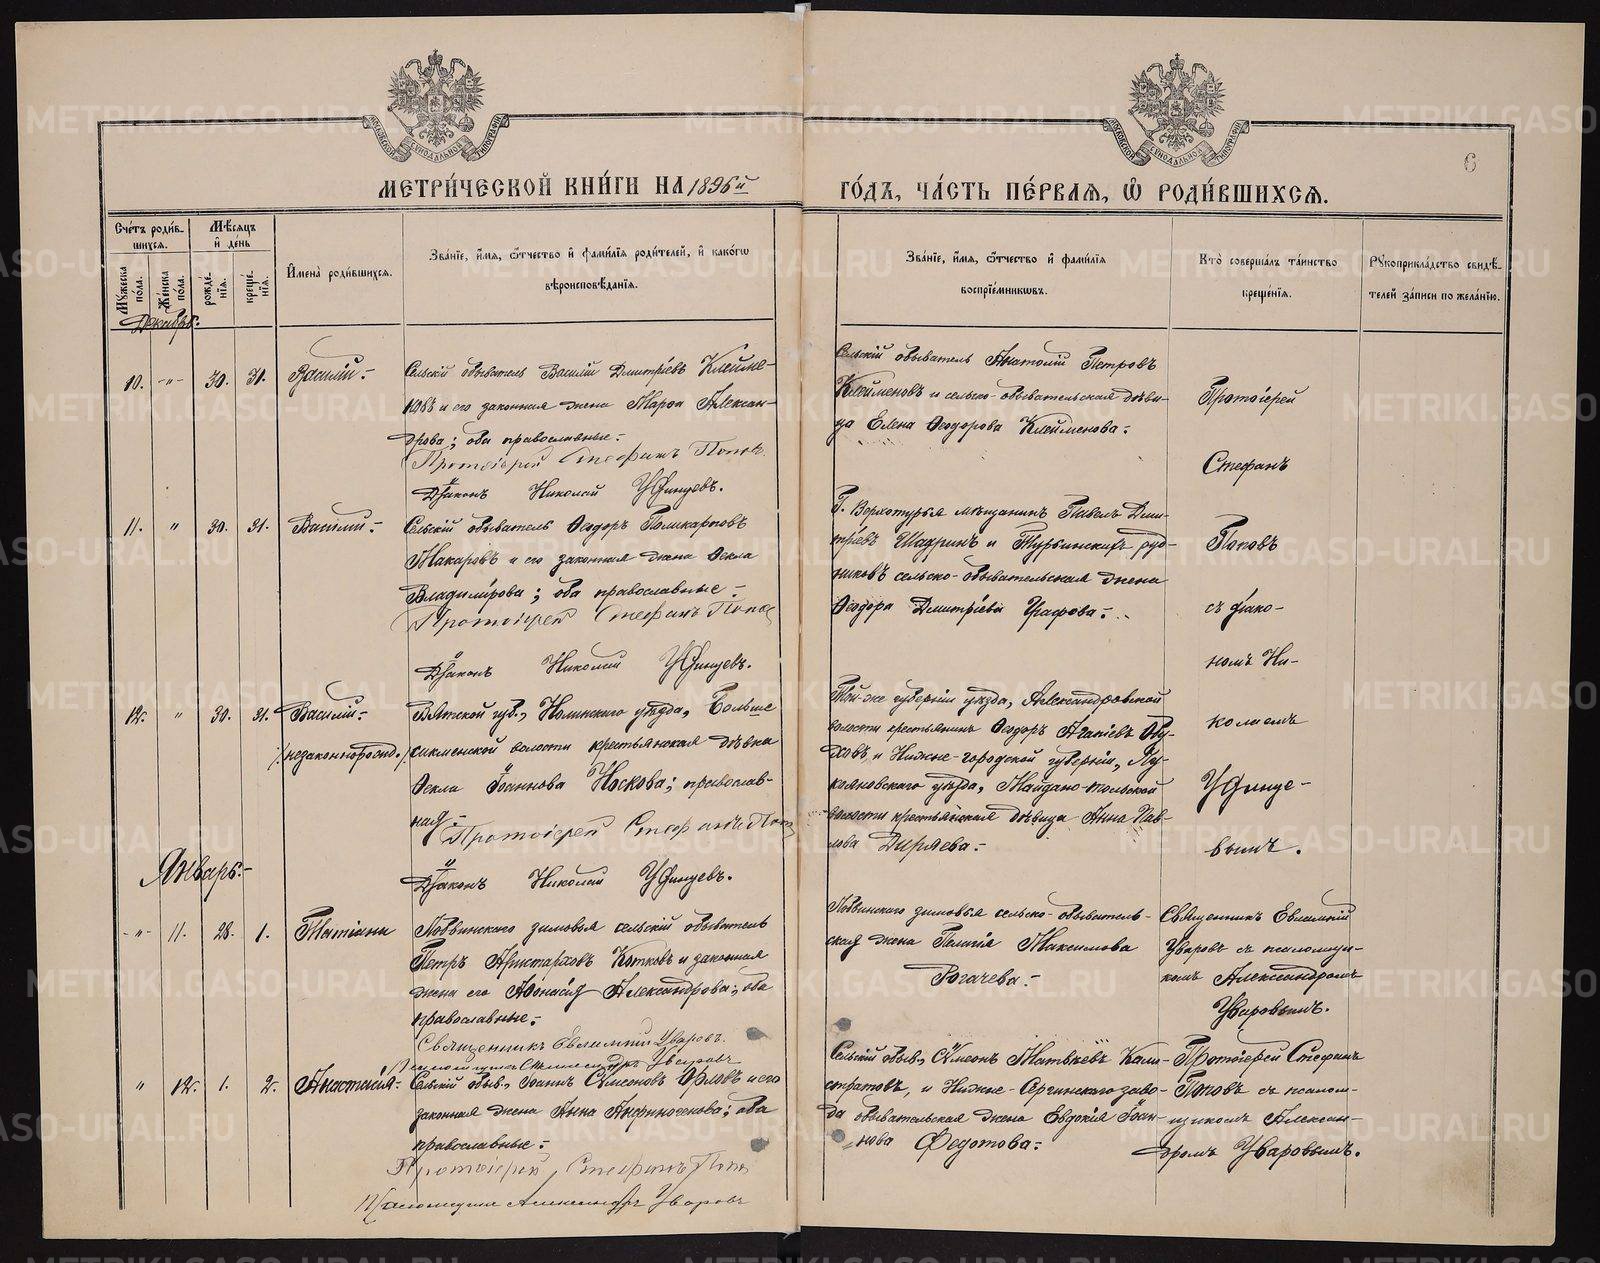 МОСКОВСКОЙ СѴНОДАЛЬНОЙ ТИПОГРАФІИ
МОСКОВСКОЙ СѴНОДАЛЬНОЙ ТИПОГРАФІИ
6
МЕТРИ́ЧЕСКОЙ КНИ́ГИ НА 1896й
ГО́ДЪ, ЧА́СТЬ ПЕ́РВАЯ, Ѿ РОДИ́ВШИХСЯ.
Сче́тъ роди́вшихся.
Мѣсяцъ и де́нь
Мꙋжеска пола.
Же́нска пола.
рожде́нїѧ.
креще́нїѧ.
Имена̀ роди́вшихся.
Зва́нїе, и́мя, ѻ҆́тчество и фами́лїя роди́телей, и како́гѡ
вѣроисповѣ́данїя.
Зва́нїе, и́мя, ѻ҆́тчество и фами́лїя
воспрїе́мникѡвъ.
Кто̀ соверша́лъ та́инство
креще́нїя.
Рꙋкоприкла́дство свидѣ́телей за́писи по жела́нїю.
Декабрь:
10. -"- 30. 31. Василій:-
Сельскій обыватель Василій Дмитріевъ Клейме-
новъ и его законная жена Марѳа Алексан-
дрова; оба православные:-
Протоіерей Стефанъ Поповъ
Діаконъ Николай Удинцевъ.
Сельскій обыватель Анатолій Петровъ
Клейменовъ и сельско-обывательская дѣви-
ца Елена Ѳеодорова Клейменова:-
Протоіерей
Стефанъ
Поповъ
съ діако-
номъ Ни-
колаемъ
Удинце-
вымъ.
11. " 30. 31. Василій:-
Сельскій обыватель Ѳеодоръ Поликарповъ
Макаровъ и его законная жена Ѳекла
Владимірова; оба православные:-
Протоіерей Стефанъ Поповъ
Діаконъ Николай Удинцевъ.
Г. Верхотурья мѣщанинъ Павелъ Дми-
тріевъ Шадринъ и Турьинскихъ руд-
никовъ сельско-обывательская жена
Ѳеодора Дмитріева
12. " 30. 31. Василій:-
/незаконнорожд./
Вятской губ., Нолинскаго уѣзда, Больше
ситменской волости крестьянская дѣвка
Ѳекла Іоаннова Носкова; православ-
ная:-
Протоіерей Стефанъ Поп
Діаконъ Николай Удинцевъ.
Той-же губерніи уѣзда, Александровской
волости крестьянинъ Ѳеодоръ Агапіевъ
и Ниже-городской губерніи, Лу-
кояновскаго уѣзда, Майдано-
волости крестьянская дѣвица Анна Пав-
лова Диряева:-
Январь:-
-"- 11. 28. 1. Татіана
Лобвинскаго зимовья сельскій обыватель
Петръ Аристарховъ Котковъ и законная
жена его Аѳанасія Александрова; оба
православные:-
Священникъ Евлампій Уваровъ.
Псаломщикъ Александръ Уваровъ
Лобвинскаго зимовья сельско-обыватель-
ская жена Пелагія Максимова
Рогачева:-
Священникъ Евлампій
Уваровъ съ псаломщи-
комъ Александромъ
Уваровымъ.
" 12. 1. 2. Анастасія:-
Сельскій обыв., Іоаннъ Сѵмеоновъ Орловъ и его
законная жена Анна Анфиногенова; оба
православные:-
Протоіерей Стефанъ Поп
Псаломщикъ Александръ Уваровъ
Сельскій обыв., Сѵмеонъ Матвѣевъ Кали-
стратовъ, и Нижне-Сергинскаго заво-
да обывательская жена Евдокія Іоан-
нова Федотова:-
Протоіерей Стефанъ
Поповъ съ псалом-
щикомъ Алексан-
дромъ Уваровымъ.
METRIKI.GASO-URAL.RU